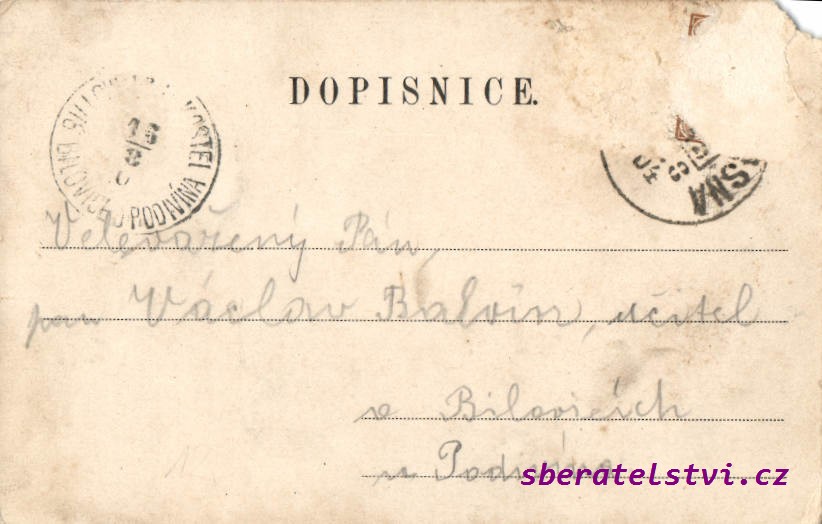 DOPISNICE.
BILOVICE U PODIVÍNA KOSTEL
15
8
ASNA
8
Velevážený Pán,
pan Václav Balvín, učitel
v Bilovicích
u Podivína
sberatelstvi.cz